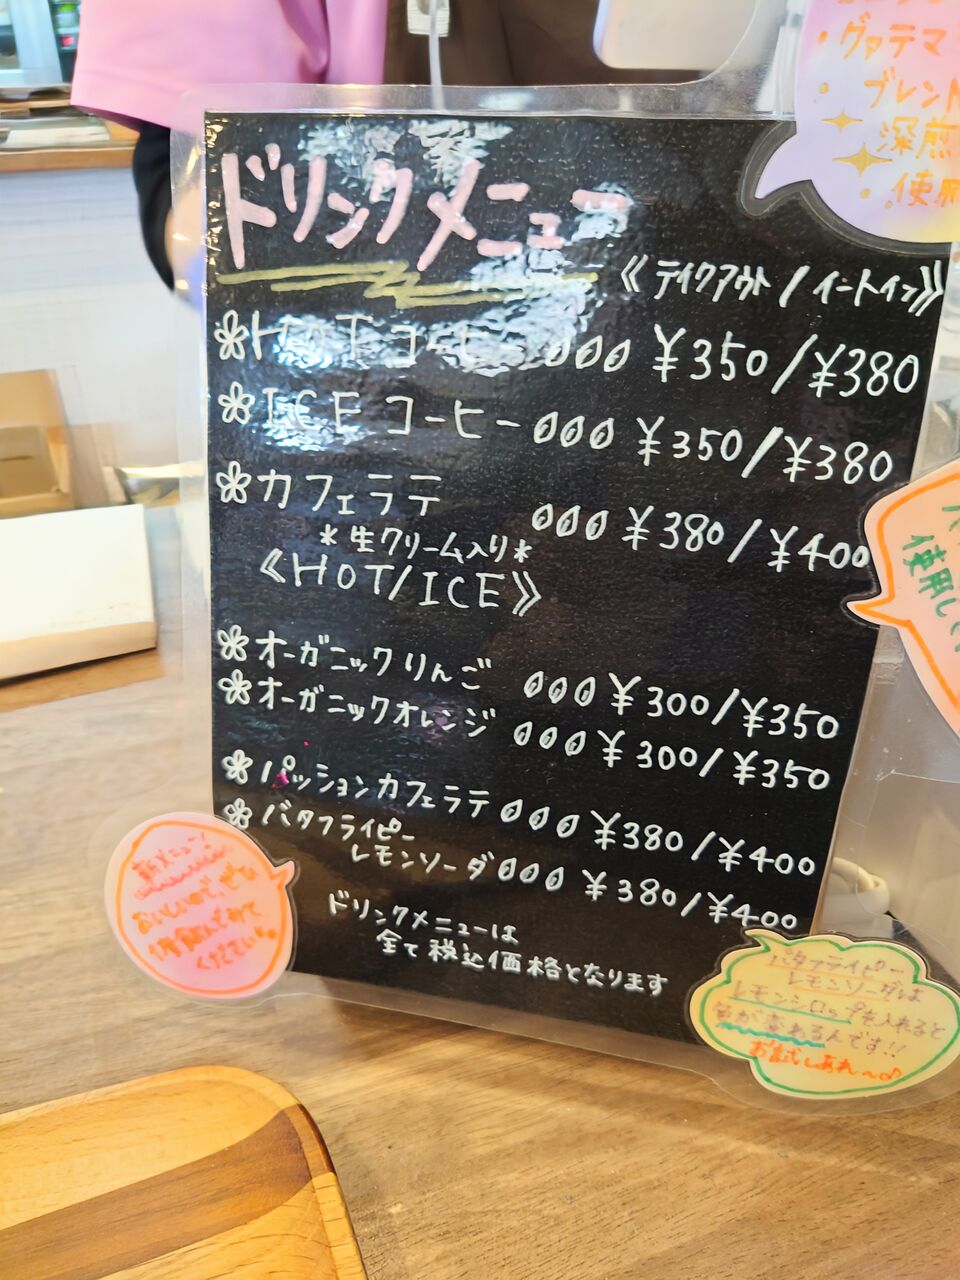 グァテマ
ブレンド
深煎
使用
ドリンクメニュー
《テイクアウト/イートイン》
HOTコーヒー ¥350/¥380
ICEコーヒー ¥350/¥380
カフェラテ ¥380/¥400
*生クリーム入り*
《HOT/ICE》
オーガニックりんご ¥300/¥350
オーガニックオレンジ ¥300/¥350
パッションカフェラテ ¥380/¥400
バタフライピー
レモンソーダ ¥380/¥400
ドリンクメニューは
全て税込価格となります
使用し
新メニュー!
おいしいので、ぜひ
飲んでみて
ください。
バタフライピー
レモンソーダは
レモンシロップを入れると
色が変わるんです!!
お試しあれ~